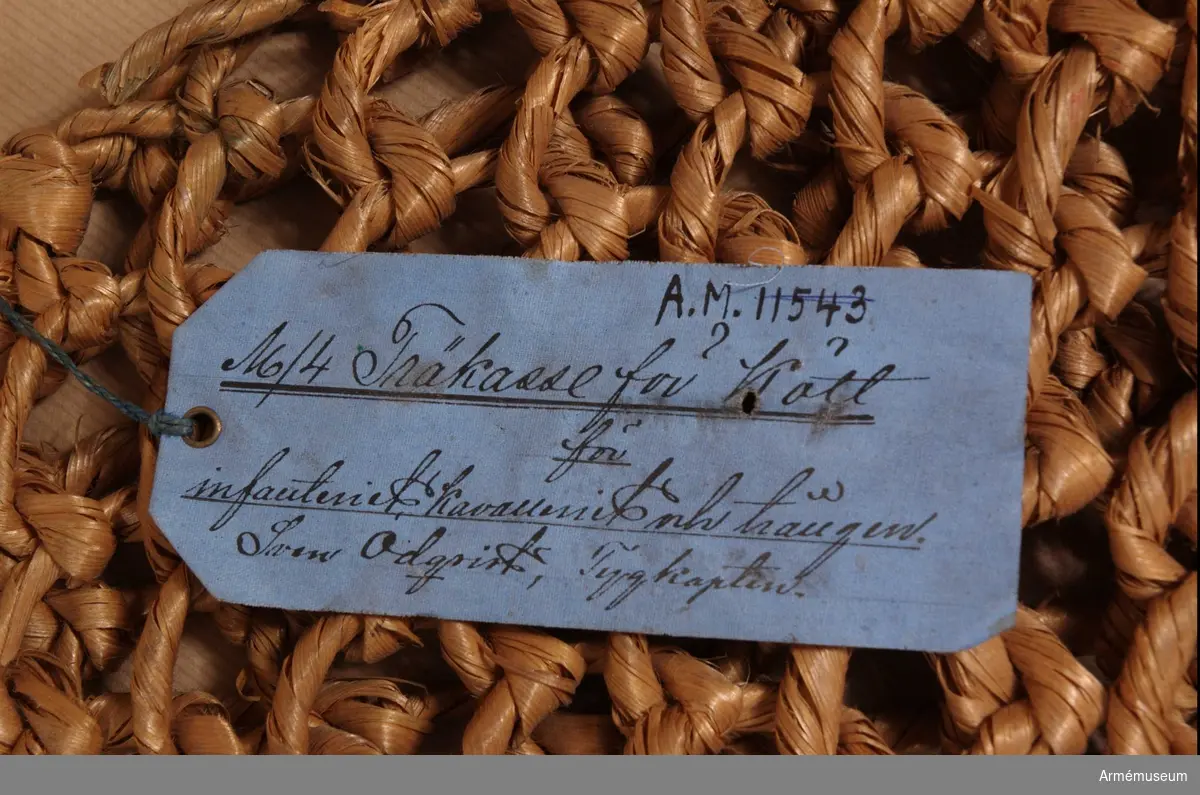 A.M. 11543
M/4 Träkasse för Kött
för
infanteriet, kavalleriet och trängen.
Sven Odqvist, Tygkapten.
Armémuseum